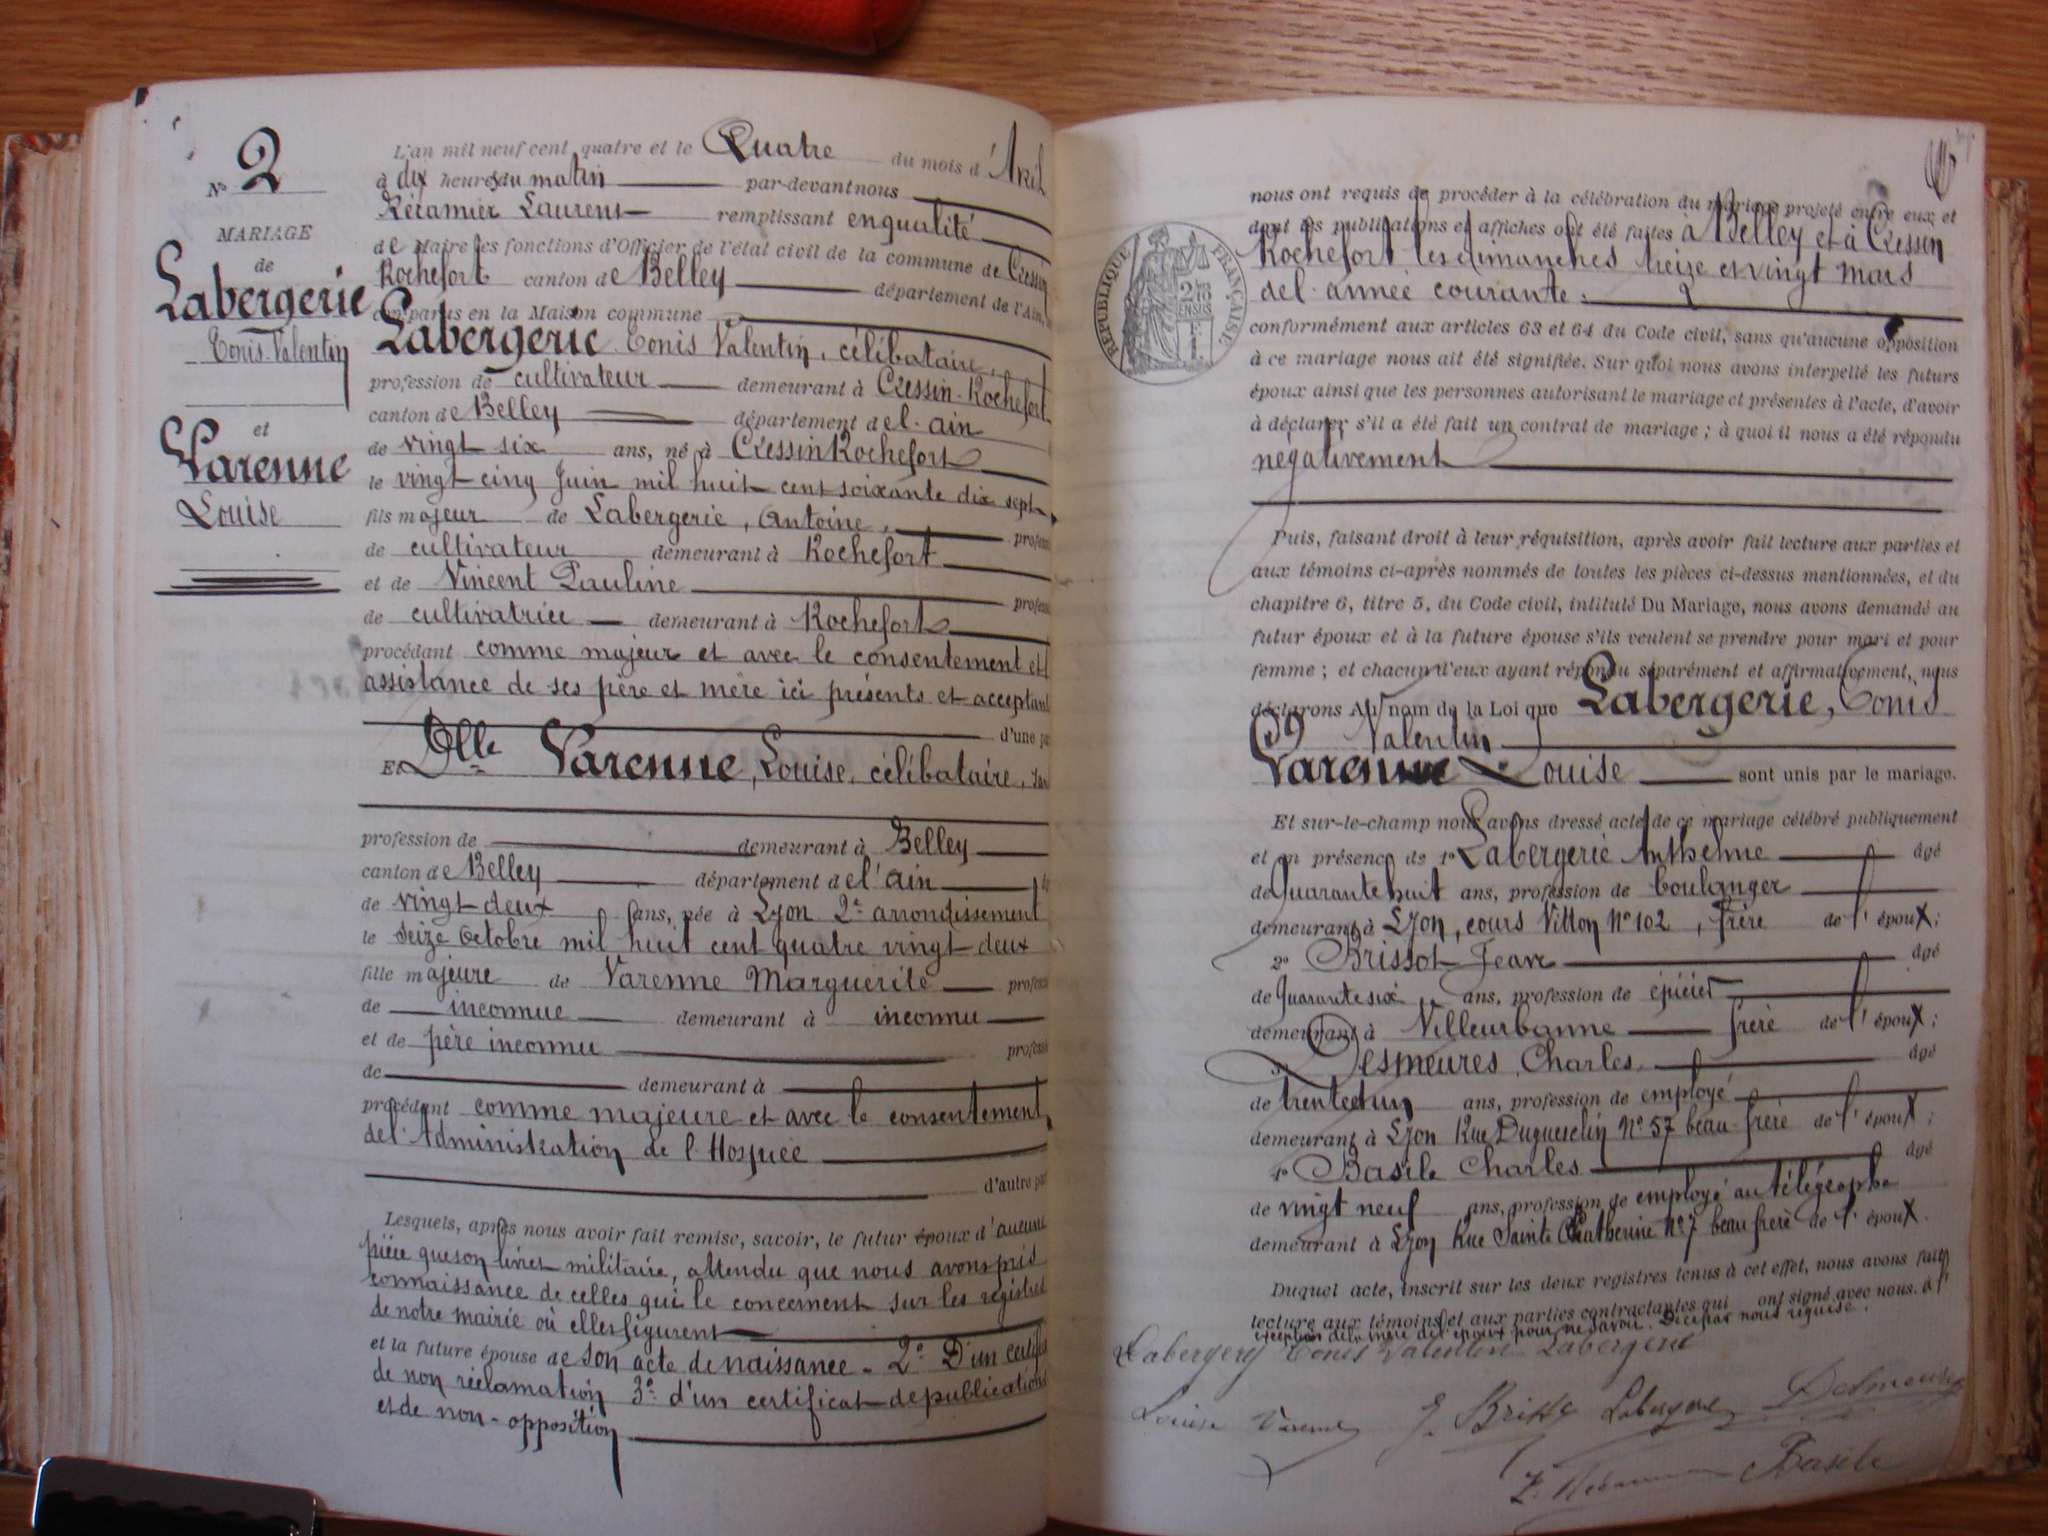 N° 2
MARIAGE
de
Labergerie
Tonis Valentin
et
Varenne
Louise
L'an mil neuf cent quatre et le Quatre du mois d'Avril
à dix heures du matin par-devant nous
Récamier Laurent remplissant en qualité
de Maire les fonctions d'Officier de l'état civil de la commune de Cressin
Rochefort canton de Belley département de l'Ain,
comparus en la Maison commune
Labergerie Tonis Valentin, célibataire,
profession de cultivateur demeurant à Cressin-Rochefort
canton de Belley département de l'ain
de vingt six ans, né à Cressin Rochefort
le vingt cinq Juin mil huit cent soixante dix sept
fils majeur de Labergerie, Antoine,
de cultivateur demeurant à Rochefort
et de Vincent Pauline
de cultivatrice demeurant à Rochefort
procédant comme majeur et avec le consentement et
assistance de ses père et mère ici présents et acceptant
d'une
Et Dlle Varenne, Louise, célibataire,
profession de demeurant à Belley
canton de Belley département de l'ain
de vingt deux ans, née à Lyon 2e arrondissement
le seize Octobre mil huit cent quatre vingt deux
fille majeure de Varenne Marguerite
de inconnue demeurant à inconnu
et de père inconnu
de demeurant à
procédant comme majeure et avec le consentement
de l'Administration de l'Hospice
d'autre
Lesquels, après nous avoir fait remise, savoir, le futur époux d'aucune
pièce que son livret militaire, attendu que nous avons pris
connaissance de celles qui le concernent sur les registres
de notre mairie où elles figurent
et la future épouse de son acte de naissance - 2° D'un certificat
de non réclamation 3° d'un certificat de publications
et de non-opposition
nous ont requis de procéder à la célébration du mariage projeté entre eux et
dont les publications et affiches ont été faites à Belley et à Cressin
Rochefort les dimanches treize et vingt mars
de l'année courante.
RÉPUBLIQUE FRANÇAISE
conformément aux articles 63 et 64 du Code civil, sans qu'aucune opposition
à ce mariage nous ait été signifiée. Sur quoi nous avons interpellé les futurs
époux ainsi que les personnes autorisant le mariage et présentes à l'acte, d'avoir
à déclarer s'il a été fait un contrat de mariage ; à quoi il nous a été répondu
négativement
Puis, faisant droit à leur réquisition, après avoir fait lecture aux parties et
aux témoins ci-après nommés de toutes les pièces ci-dessus mentionnées, et du
chapitre 6, titre 5, du Code civil, intitulé Du Mariage, nous avons demandé au
futur époux et à la future épouse s'ils veulent se prendre pour mari et pour
femme ; et chacun d'eux ayant répondu séparément et affirmativement, nous
déclarons Au nom de la Loi que Labergerie, Tonis
Valentin
Varenne Louise sont unis par le mariage.
Et sur-le-champ nous avons dressé acte de ce mariage célébré publiquement
et en présence de 1° Labergerie Anthelme âgé
de Quarante huit ans, profession de boulanger
demeurant à Lyon, cours Vitton N° 102, frère de l'époux;
2° Brissot Jean âgé
de Quarante six ans, profession de épicier
demeurant à Villeurbanne frère de l'époux;
Desmeures Charles âgé
de trente et un ans, profession de employé
demeurant à Lyon Rue Duguesclin N° 57 beau-frère de l'époux;
4° Basile Charles âgé
de vingt neuf ans, profession de employé au télégraphe
demeurant à Lyon Rue Sainte Catherine N° 7 beau frère de l'époux.
Duquel acte, inscrit sur les deux registres tenus à cet effet, nous avons fait
lecture aux témoins et aux parties contractantes qui ont signé avec nous. à l'
exception de la mère de l'époux pour ne savoir. De ce par nous requise.
Labergerie Tonis Valentin Labergerie
Louise Varenne J. Brissot Labergerie Desmeures
Basile